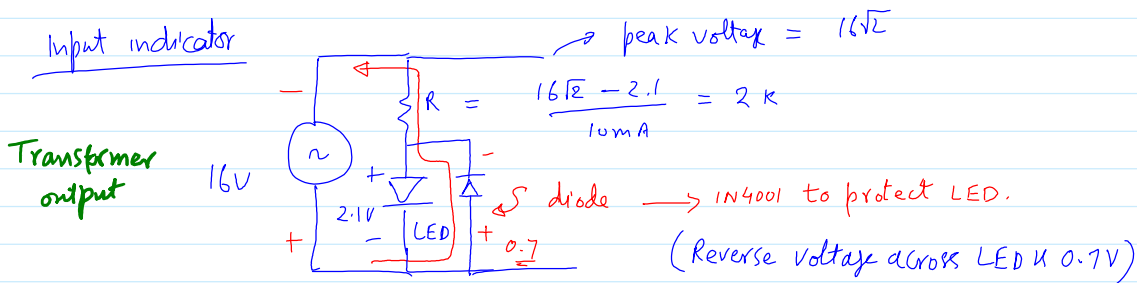 Input indicator
peak voltage = 16√2
R = (16√2 - 2.1) / 10mA = 2 K
Transformer output
16V
~
-
+
+
2.1V
-
LED
-
+
0.7
diode → 1N4001 to protect LED.
(Reverse voltage across LED is 0.7V)